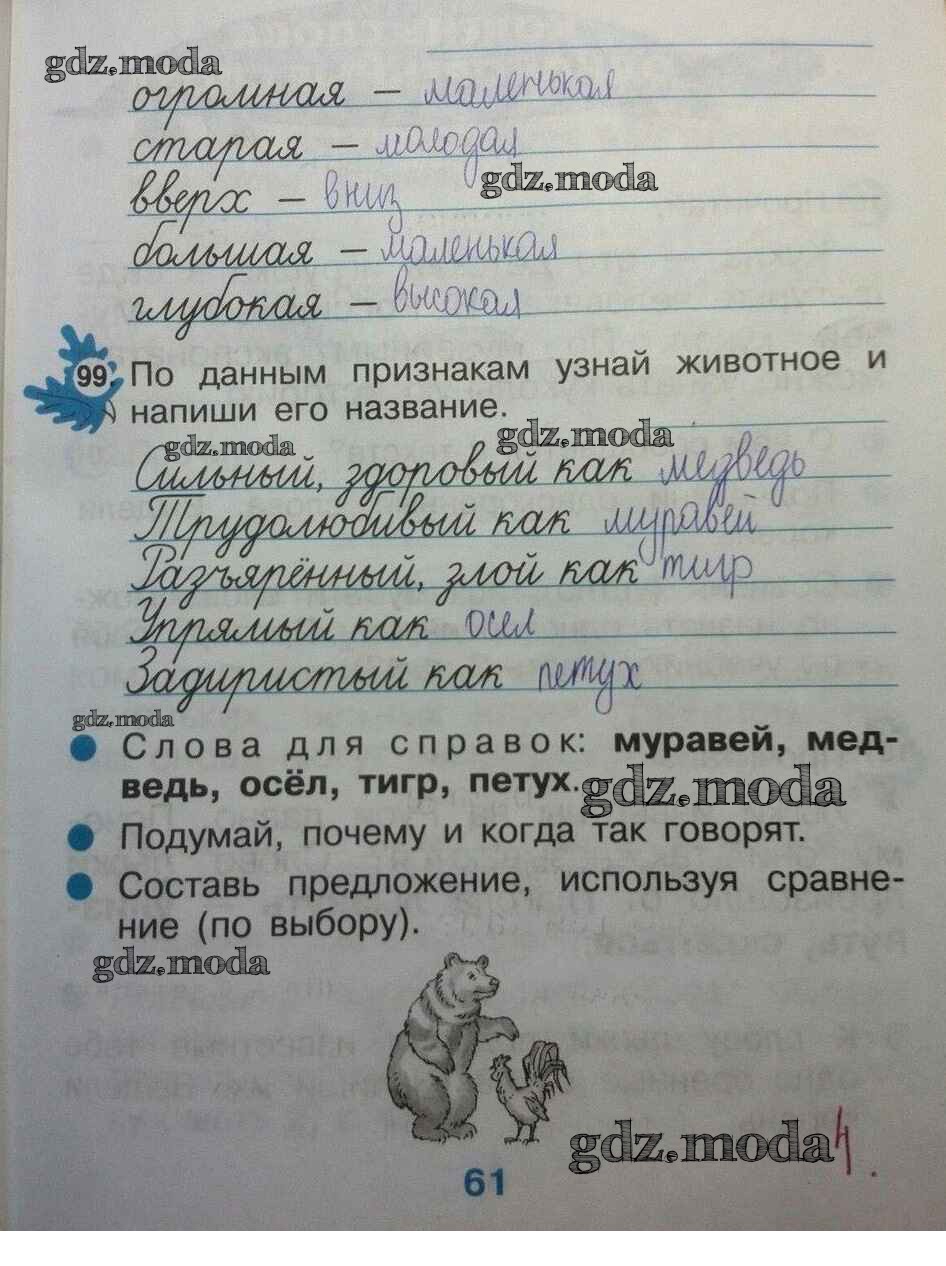 gdz.moda
огромная – маленькая
старая – молодая
gdz.moda
вверх – вниз
большая – маленькая
глубокая – высокая
99. По данным признакам узнай животное и
напиши его название.
gdz.moda
gdz.moda
Сильный, здоровый как медведь
Трудолюбивый как муравей
Разъярённый, злой как тигр
Упрямый как осел
Задиристый как петух
gdz.moda
Слова для справок: муравей, мед-
ведь, осёл, тигр, петух.
gdz.moda
Подумай, почему и когда так говорят.
Составь предложение, используя сравне-
ние (по выбору).
gdz.moda
gdz.moda
4.
61